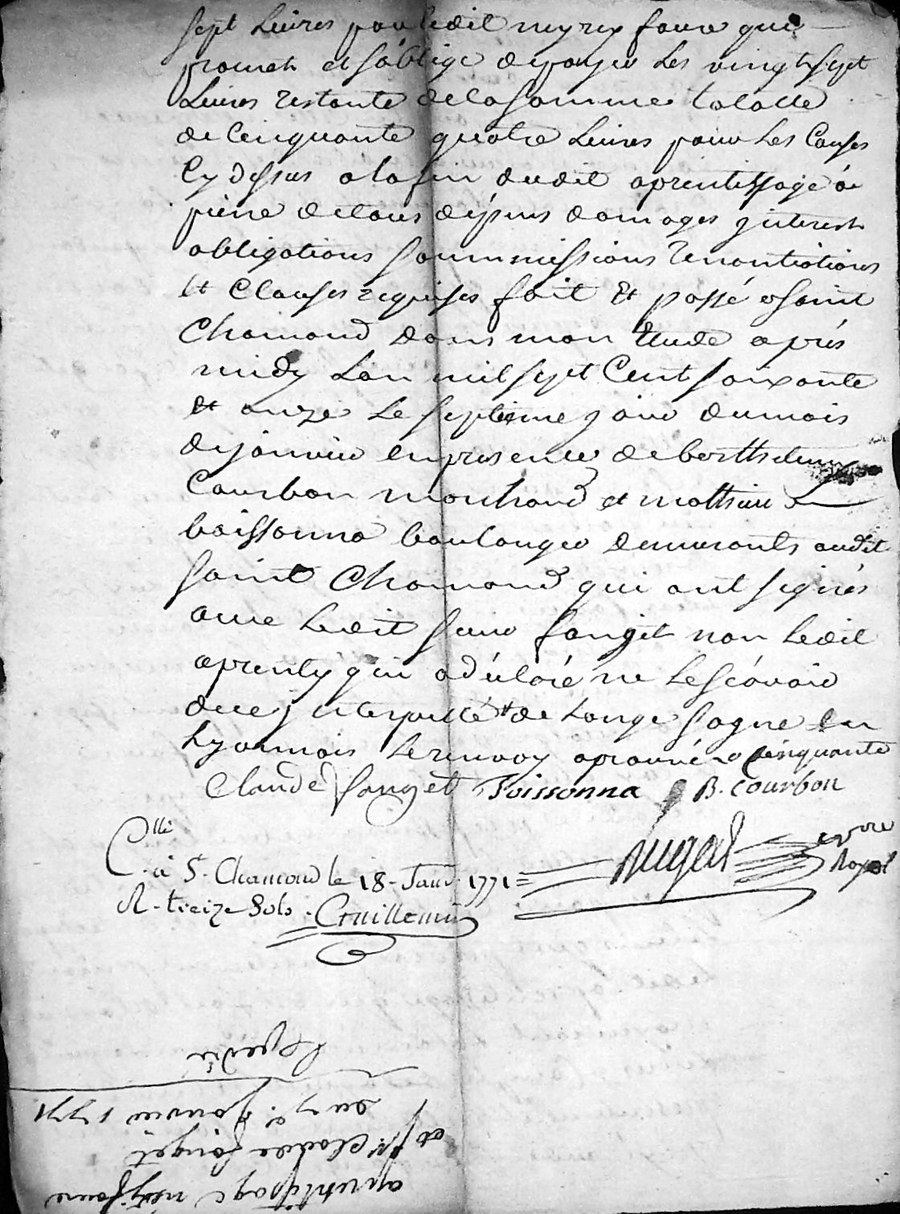 sept Livres par ledit neyrey faure qui
promet et s'oblige de payer les vingt sept
Livres restante de la somme totalle
de Cinquante quatre Livres pour les Causes
Cy dessus a la fin dudit aprentissage a
peine de tous dépens domages interest
obligations soummissions renontiations
et Clauses requises fait et passé a saint
Chamond dans mon Etude après
midy L'an mil sept Cent soixante
et onze le septieme jour du mois
de janvier en presence de berthelemy
Courbon marchand et mathieu
boissonna boulanger demeurants audit
saint Chamond qui ont signés
avec ledit sieur fanget non ledit
aprenty qui a déclaré ne le scavoir
de ce interpellé de Lange
Lyonnais le renvoy aprouvé Cinquante
Claude fanget Boissonna B. Courbon
Clle à St. Chamond le 18. Janv. 1771
R. treize Sols Guillemin
Royal
aprentissage neyr faure
et sr. Claude fanget
du 7e. Janvier 1771
Expedié